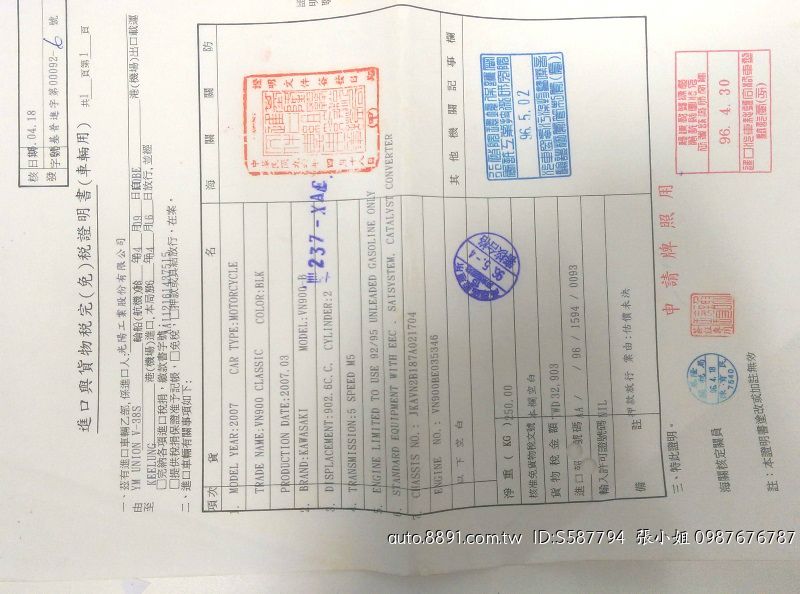 核
日期 96.04.18
發
字號 基普進字第00092-6 號
進口與貨物稅完(免)稅證明書(車輛用)
共1 頁第1 頁
一、茲有進口車輛乙部, 係進口人:光陽工業股份有限公司
由 YM UNION V-38S 輪船(航機)於 96 年 4 月 9 日自 KOBE 港(機場)出口載運
至 KEELUNG 港(機場)進口, 本局於 96 年 4 月 16 日放行, 並經
□完納各項進口稅捐, 繳款書字號:
□提供稅捐保證准予記帳, □免稅, □押款或具結放行, 在案。
二、進口車輛有關事項如下:
項次 貨 名
海 關 關 防
1. MODEL YEAR:2007 CAR TYPE:MOTORCYCLE
TRADE NAME:VN900 CLASSIC COLOR:BLK
PRODUCTION DATE:2007.03
2. BRAND:KAWASAKI MODEL:VN900-B
3. DISPLACEMENT:902.6C.C. CYLINDER:2
4. TRANSMISSION:5 SPEED M5
5. ENGINE LIMITED TO USE 92/95 UNLEADED GASOLINE ONLY
6. STANDARD EQUIPMENT WITH EEC . SAISYSTEM. CATALYST CONVERTER
7. CHASSIS NO.: JKAVN2B187A021704
ENGINE NO.: VN900BE035346
以 下 空 白
237-XAE
證明文件簽發日期
中華民國九六年四月十八日
(甲)
其 他 機 關 記 事 欄
96. 5. 02
96.5.-4
淨 重 ( KG ) 250.00
核准免貨物稅文號 本欄空白
貨 物 稅 金 額 TWD 32,903
進口報 號碼 AA / / 96 / 1594 / 0093
輸入許可證號碼 NIL
備 註 押款放行 案由:估價未決
96. 4. 30
申請牌照用
三、特此證明。
海關核定關員
96.4.18
7540
註:本證明書塗改或加註無效
auto.8891.com.tw ID:S587794 張小姐 0987676787